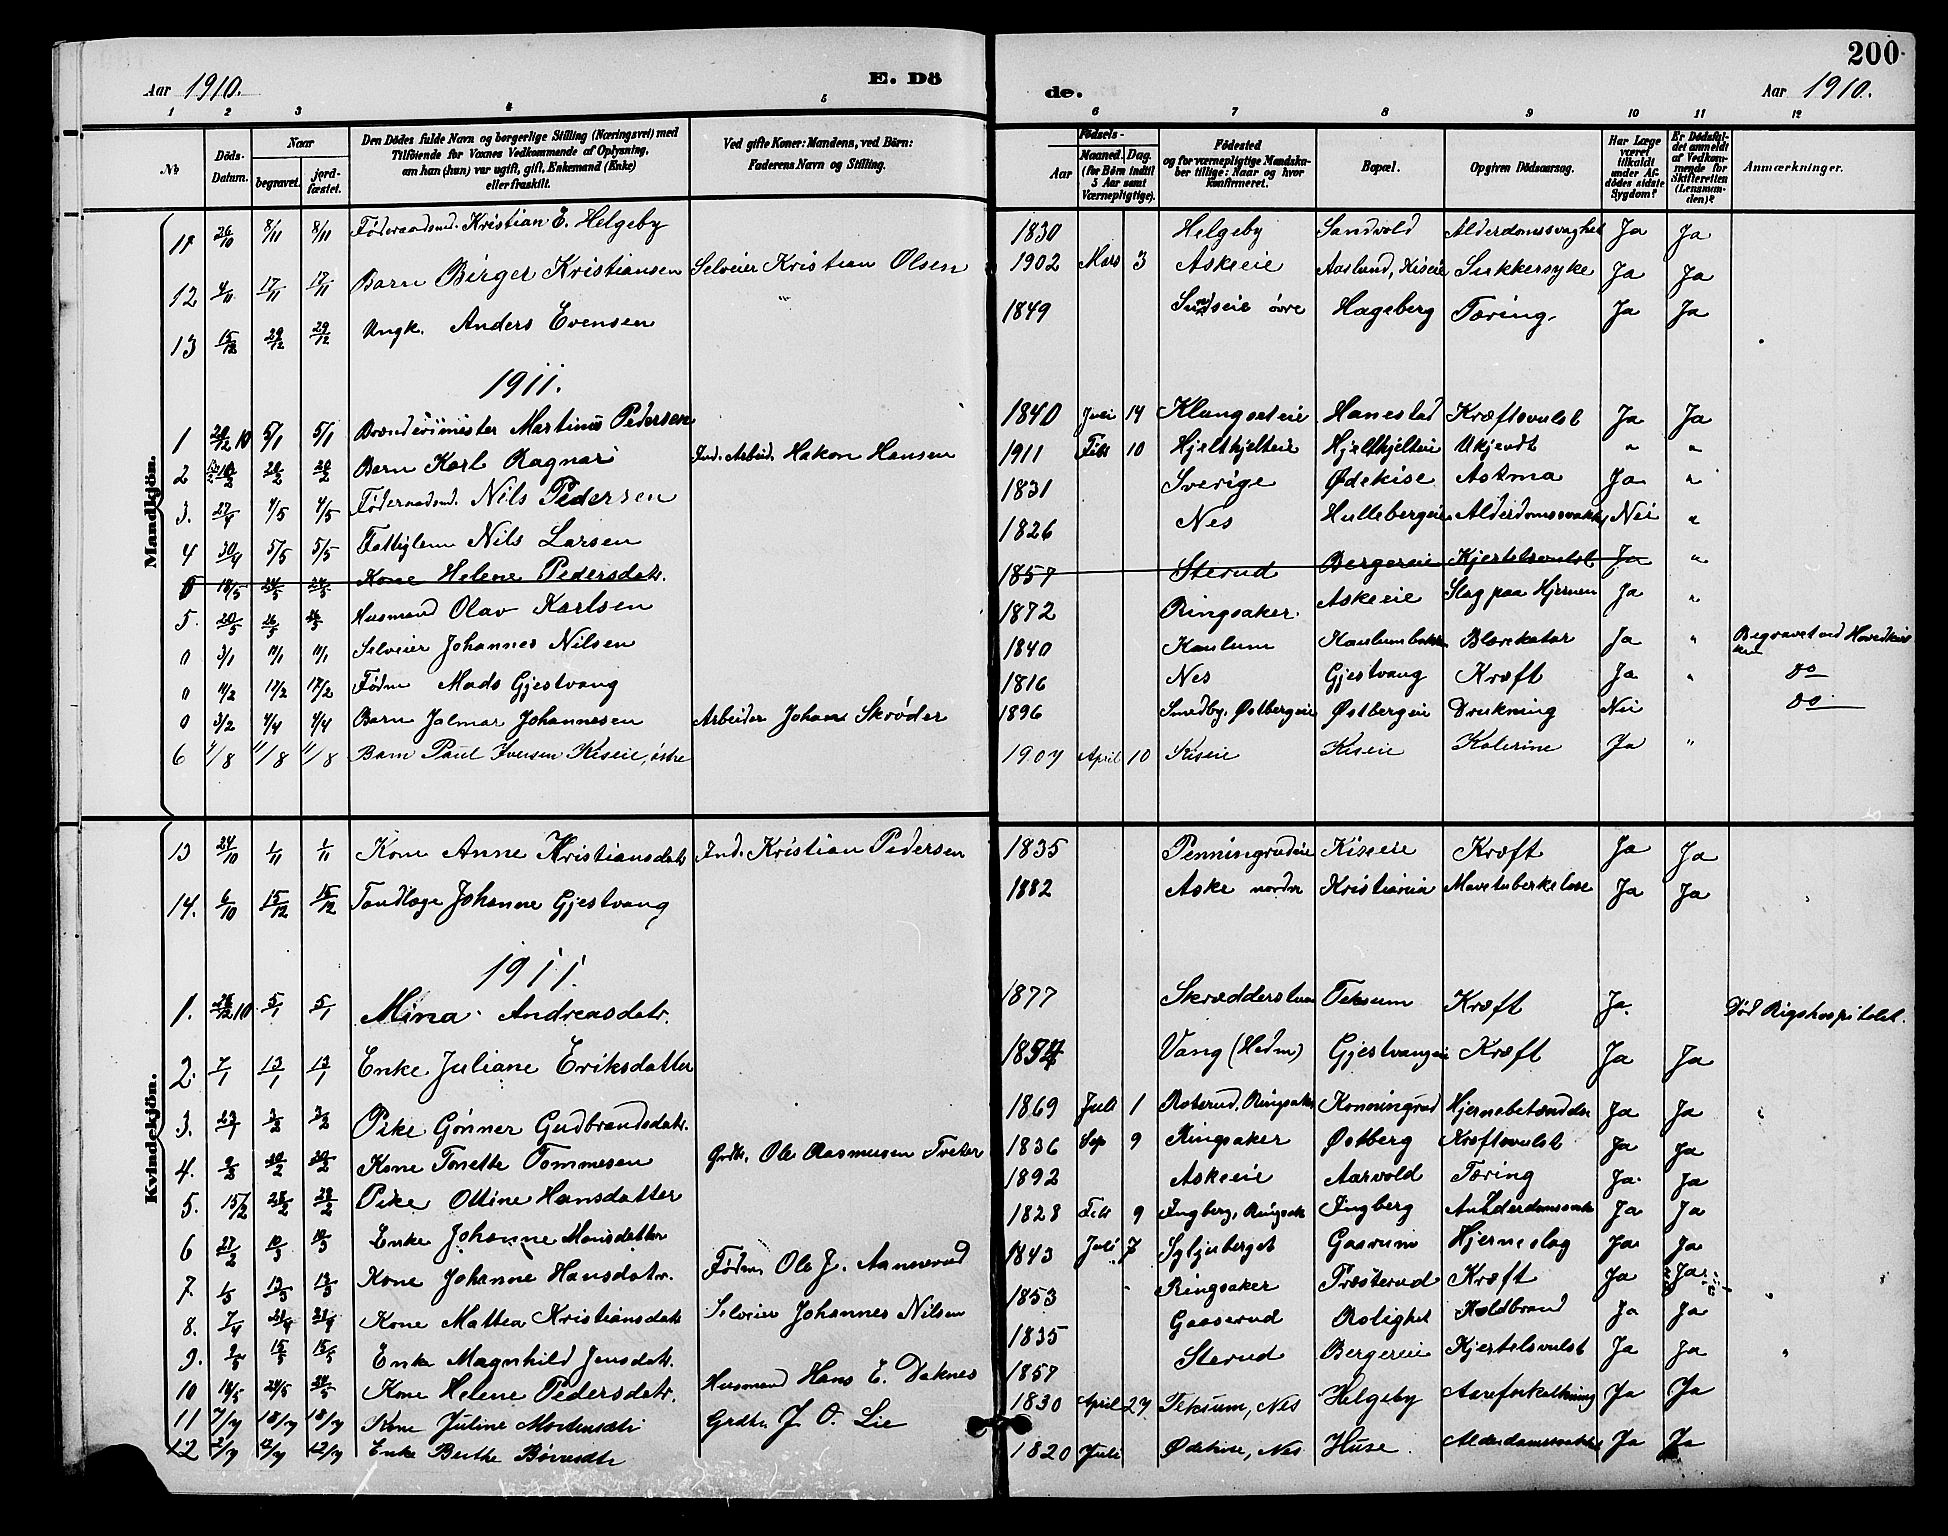 200
Aar 1910. E. Dö de. Aar 1910.
1 2 3 4 5 6 7 8 9 10 11 12
Nr. Döds-Datum. Naar begravet. jordfæstet. Den Dödes fulde Navn og borgerlige Stilling (Næringsvei) med Tilföiende for Voxnes Vedkommende af Oplysning, om han (hun) var ugift, gift, Enkemand (Enke) eller fraskilt. Ved gifte Koner: Mandens, ved Börn: Faderens Navn og Stilling. Födsels- Aar Maaned. Dag. (for Børn indtil 5 Aar samt Værnepligtige). Födested og for værnepligtige Mandskaber tillige: Naar og hvor konfirmeret. Bopæl. Opgiven Dödsaarsag. Har Læge været tilkaldt under Afdödes sidste Sygdom? Er Dödsfaldet anmeldt af Vedkommende for Skifteretten (Lensmanden)? Anmærkninger.
Mandkjön.
11 26/10 8/11 8/11 Føderaadsmd. Kristian E. Helgeby 1830 Helgeby Sandvold Alderdomssvaghet Ja Ja
12 4/11 17/11 17/11 Barn Birger Kristiansen Selveier Kristian Olsen 1902 Mars 3 Askeeie Aaslund, Kiseie Sukkersyke Ja Ja
13 15/12 29/12 29/12 Ungk. Anders Evensen 1849 øvre Hageberg Tæring. Ja Ja
1911.
1 28/12 10 5/1 5/1 Martinus Pedersen 1840 Juli 14 Klangseteie Hanestad Kræftsvulst Ja Ja
2 20/2 20/2 Barn Karl Ragnar Ind. Arbeid. Hakon Hansen 1911 Feb 10 Hjelthjelteie Hjelthjelteie Ukjendt " "
3. 27/4 4/5 4/5 Føderaadsmd. Nils Pedersen 1831 Sverige Ødekise Astma Ja "
4 30/4 5/5 5/5 Fattiglem Nils Larsen 1826 Nes Hullebergeie Nei "
5 18/5 24/5 24/5 Kone Helene Pedersdatr. 1857 Sterud Bergereie Kjertelsvulst Ja "
5. 20/5 26/5 26/5 Husmand Olav Karlsen 1872 Ringsaker Askeeie Slag paa Hjernen Ja "
0 3/1 11/1 11/1 Selveier Johannes Nilsen 1840 Kaulum Kaulumbakken Blærekatar Ja " Begravet ved Hovedkirken
0 11/2 17/2 17/2 Fødm Mads Gjestvang 1816 Nes Gjestvang Kræft Ja " do
0 3/2 4/4 4/4 Barn Jalmar Johannesen Arbeider Johan Skrøder 1896 Smedby, Østbergeie Østbergeie Drukning Nei do
6 4/8 11/8 11/8 Barn Paul Iversen Kiseie, østre 1907 April 10 Kiseie Kiseie Kolerine Ja "
Kvindekjön.
13 24/10 1/11 1/11 Kone Anne Kristiansdatr Ind. Kristian Pedersen 1835 Penningrudeie Kiseeie Kræft Ja Ja
14. 6/10 15/12 15/12 Tandlæge Johanne Gjestvang 1882 Aske nordre Kristiania Ja Ja
1911
1. 28/12 10 5/1 5/1 Mina Andreasdatr. 1877 Teksum Kræft Ja. Død Rigshospitalet.
2. 7/1 13/1 13/1 Enke Juliane Eriksdatter 1854 Vang (Hedm) Gjestvangeie Kræft Ja Ja
3. 23/1 3/2 3/2 Pike Gønner Gudbrandsdatr. 1869 Juli 1 Roterud, Ringsaker Konningrud Hjernebetændelse Ja Ja
4. 9/2 20/2 20/2 Kone Tonette Tommesen Grdbr. Ole Rasmusen Tveter 1836 Sep 9 Ringsaker Østberg Kræftsvulst Ja Ja
5. 15/2 28/2 28/2 Pike Oline Hansdatter 1892 Askeeie Aarvold Tæring Ja Ja
6 27/2 10/3 10/3 Enke Johanne Monsdatter 1828 Feb 9 Ingberg, Ringsak Ingberg Ja Ja
7. 1/3 13/3 13/3 Kone Johanne Hansdatr. Fødm. Ole J. Aamerud 1843 Juli 7 Syljuberget Gaarum Hjerneslag Ja Ja
8. 7/4 21/4 21/4 Kone Mathea Kristiansdatr Selveier Johannes Nilsen 1853 Ringsaker Præsterud Kræft Ja Ja
9. 9/5 15/5 15/5 Enke Magnhild Jensdatr. 1835 Gaaserud Rolighet Koldbrand Ja Ja
10 18/5 24/5 24/5 Kone Helene Pedersdatr. Husmand Hans E. Daknes 1857 Sterud Bergereie Kjertelsvulst Ja Ja
11 7/7 18/7 18/7 Kone Juline Mortensdtr Grdbr. J. O. Lie 1830 April 27 Teksum, Nes Helgeby Aareforkalkning Ja Ja
12 2/7 12/7 12/7 Enke Berthe 1820 Juli Ødekise, Nes Huse. Ja Ja